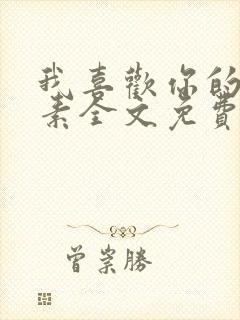 我喜歡你的
素全文免費
曾崇勝